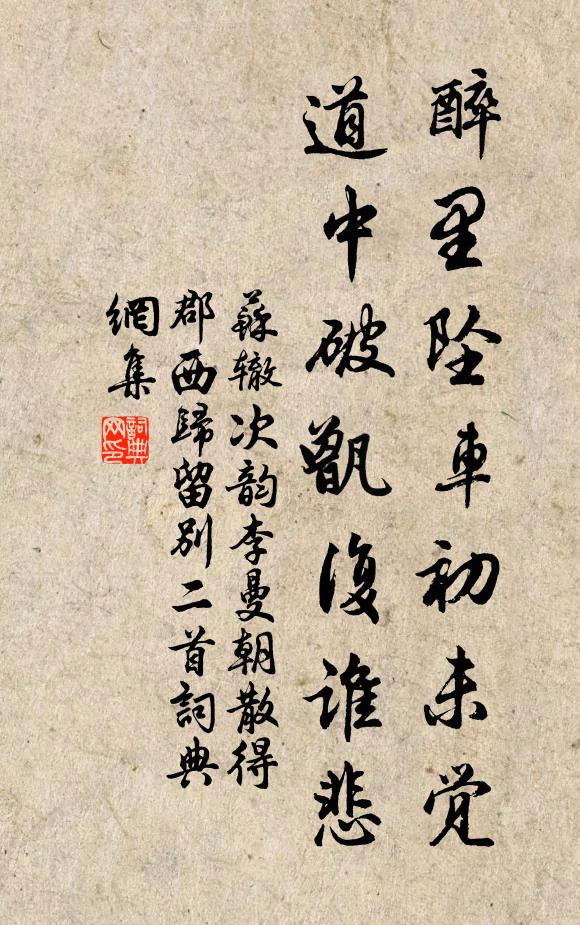 醉里坠車初未觉
道中破甑復谁悲
蘇辙次韵李曼朝散得
郡西歸留别二首詞典
網集
詞典
网印